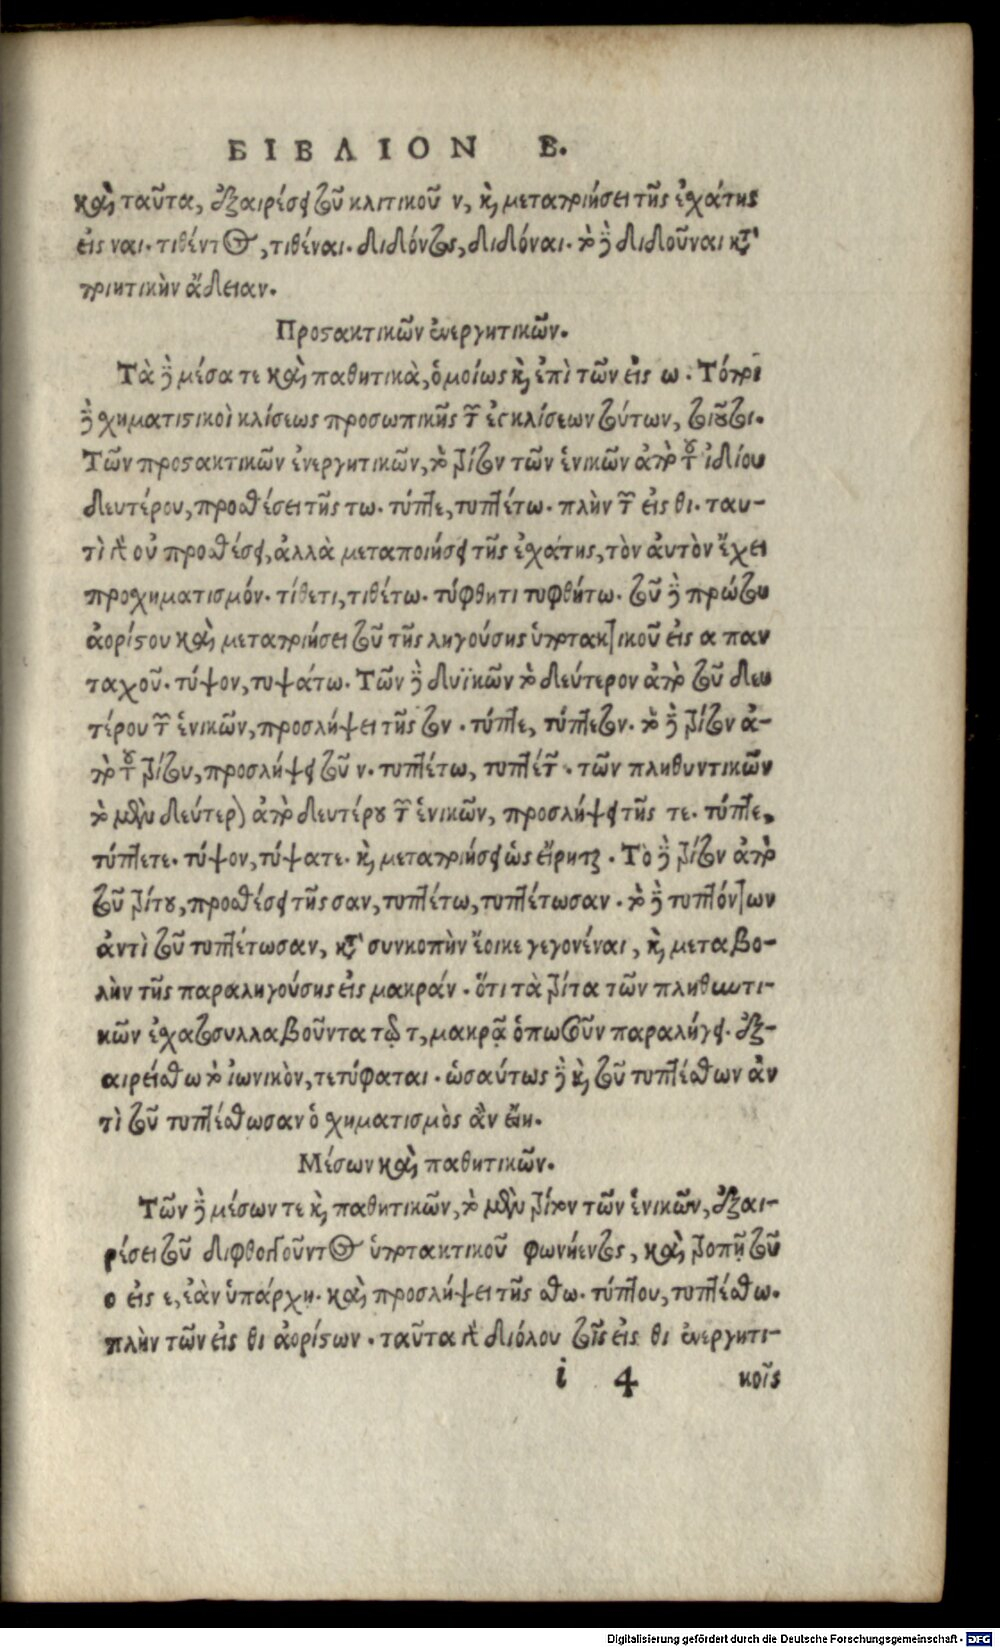 ΒΙΒΛΙΟΝ Β.
καὶ ταῦτα, ἐξαιρέσει τοῦ κλιτικοῦ ν, καὶ μεταποιήσει τῆς ἐσχάτης
εἰς ναι. τιθέντος, τιθέναι. διδόντος, διδόναι. τὸ δὲ διδοῦναι κατὰ
ποιητικὴν ἄδειαν.
Προστακτικῶν ἐνεργητικῶν.
Τὰ δὲ μέσα τε καὶ παθητικὰ, ὁμοίως καὶ ἐπὶ τῶν εἰς ω. Τόποι
δὲ σχηματιστικοὶ κλίσεως προσωπικῆς τῶν ἐγκλίσεων τούτων, τοιοῦτοι.
Τῶν προστακτικῶν ἐνεργητικῶν, τὸ τρίτον τῶν ἑνικῶν ἀπὸ τοῦ ἰδίου
δευτέρου, προσθέσει τῆς τω. τύπτε, τυπτέτω. πλὴν τῶν εἰς θι. ταυ-
τὶ γὰρ οὐ προσθέσει, ἀλλὰ μεταποιήσει τῆς ἐσχάτης, τὸν αὐτὸν ἔχει
προσχηματισμόν. τίθετι, τιθέτω. τύφθητι τυφθήτω. τοῦ δὲ πρώτου
ἀορίστου καὶ μεταποιήσει τοῦ τῆς ληγούσης ὑποτακτικοῦ εἰς α παν
ταχοῦ. τύψον, τυψάτω. Τῶν δὲ δυϊκῶν τὸ δεύτερον ἀπὸ τοῦ δευ
τέρου τῶν ἑνικῶν, προσλήψει τῆς τον. τύπτε, τύπτετον. τὸ δὲ τρίτον ἀ-
πὸ τοῦ τρίτου, προσλήψει τοῦ ν. τυπτέτω, τυπτέτων. τῶν πληθυντικῶν
τὸ μὲν δεύτερον ἀπὸ δευτέρου τῶν ἑνικῶν, προσλήψει τῆς τε. τύπτε,
τύπτετε. τύψον, τύψατε. καὶ μεταποιήσει ὡς εἴρηται. Τὸ δὲ τρίτον ἀπὸ
τοῦ τρίτου, προσθέσει τῆς σαν, τυπτέτω, τυπτέτωσαν. τὸ δὲ τυπτόντων
ἀντὶ τοῦ τυπτέτωσαν, κατὰ συνκοπὴν ἔοικε γεγονέναι, καὶ μεταβο-
λὴν τῆς παραληγούσης εἰς μακράν. ὅτι τὰ τρίτα τῶν πληθυντι-
κῶν ἐσχατοσυλλαβοῦντα τῷ τ, μακρᾷ ὁπωσοῦν παραλήγει. ἐξ-
αιρείσθω τὸ ἰωνικὸν, τετύφαται. ὡσαύτως δὲ καὶ τοῦ τυπτέσθων ἀν
τὶ τοῦ τυπτέσθωσαν ὁ σχηματισμὸς ἂν εἴη.
Μέσων καὶ παθητικῶν.
Τῶν δὲ μέσων τε καὶ παθητικῶν, τὸ μὲν τρίτον τῶν ἑνικῶν, ἐξαι-
ρέσει τοῦ διφθογγοῦντος ὑποτακτικοῦ φωνήεντος, καὶ τροπῇ τοῦ
ο εἰς ε, ἐὰν ὑπάρχῃ. καὶ προσλήψει τῆς σθω. τύπτου, τυπτέσθω.
πλὴν τῶν εἰς θι ἀορίστων. ταῦτα γὰρ διόλου τοῖς εἰς θι ἐνεργητι-
i 4 κοῖς
Digitalisierung gefördert durch die Deutsche Forschungsgemeinschaft - DFG